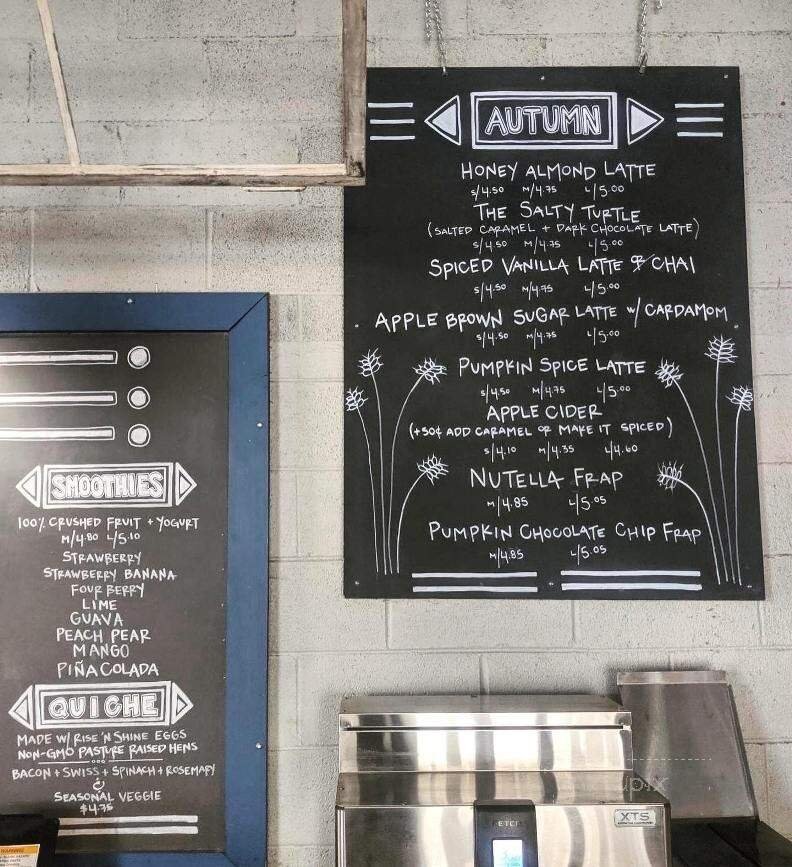 AUTUMN
HONEY ALMOND LATTE
S/4.50 M/4.75 L/5.00
THE SALTY TURTLE
(SALTED CARAMEL + DARK CHOCOLATE LATTE)
S/4.50 M/4.75 L/5.00
SPICED VANILLA LATTE OR CHAI
S/4.50 M/4.75 L/5.00
APPLE BROWN SUGAR LATTE W/ CARDAMOM
S/4.50 M/4.75 L/5.00
PUMPKIN SPICE LATTE
S/4.50 M/4.75 L/5.00
APPLE CIDER
(+50¢ ADD CARAMEL OR MAKE IT SPICED)
S/4.10 M/4.35 L/4.60
NUTELLA FRAP
M/4.85 L/5.05
PUMPKIN CHOCOLATE CHIP FRAP
M/4.85 L/5.05
SMOOTHIES
100% CRUSHED FRUIT + YOGURT
M/4.80 L/5.10
STRAWBERRY
STRAWBERRY BANANA
FOUR BERRY
LIME
GUAVA
PEACH PEAR
MANGO
PIÑA COLADA
QUICHE
MADE W/ RISE 'N SHINE EGGS
NON-GMO PASTURE RAISED HENS
BACON + SWISS + SPINACH + ROSEMARY
&
SEASONAL VEGGIE
$4.75
WARNING
FETCO
XTS